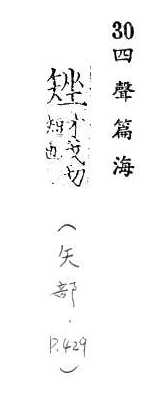 30四聲篇海
矬 才戈切
短也
(矢部.P.429)